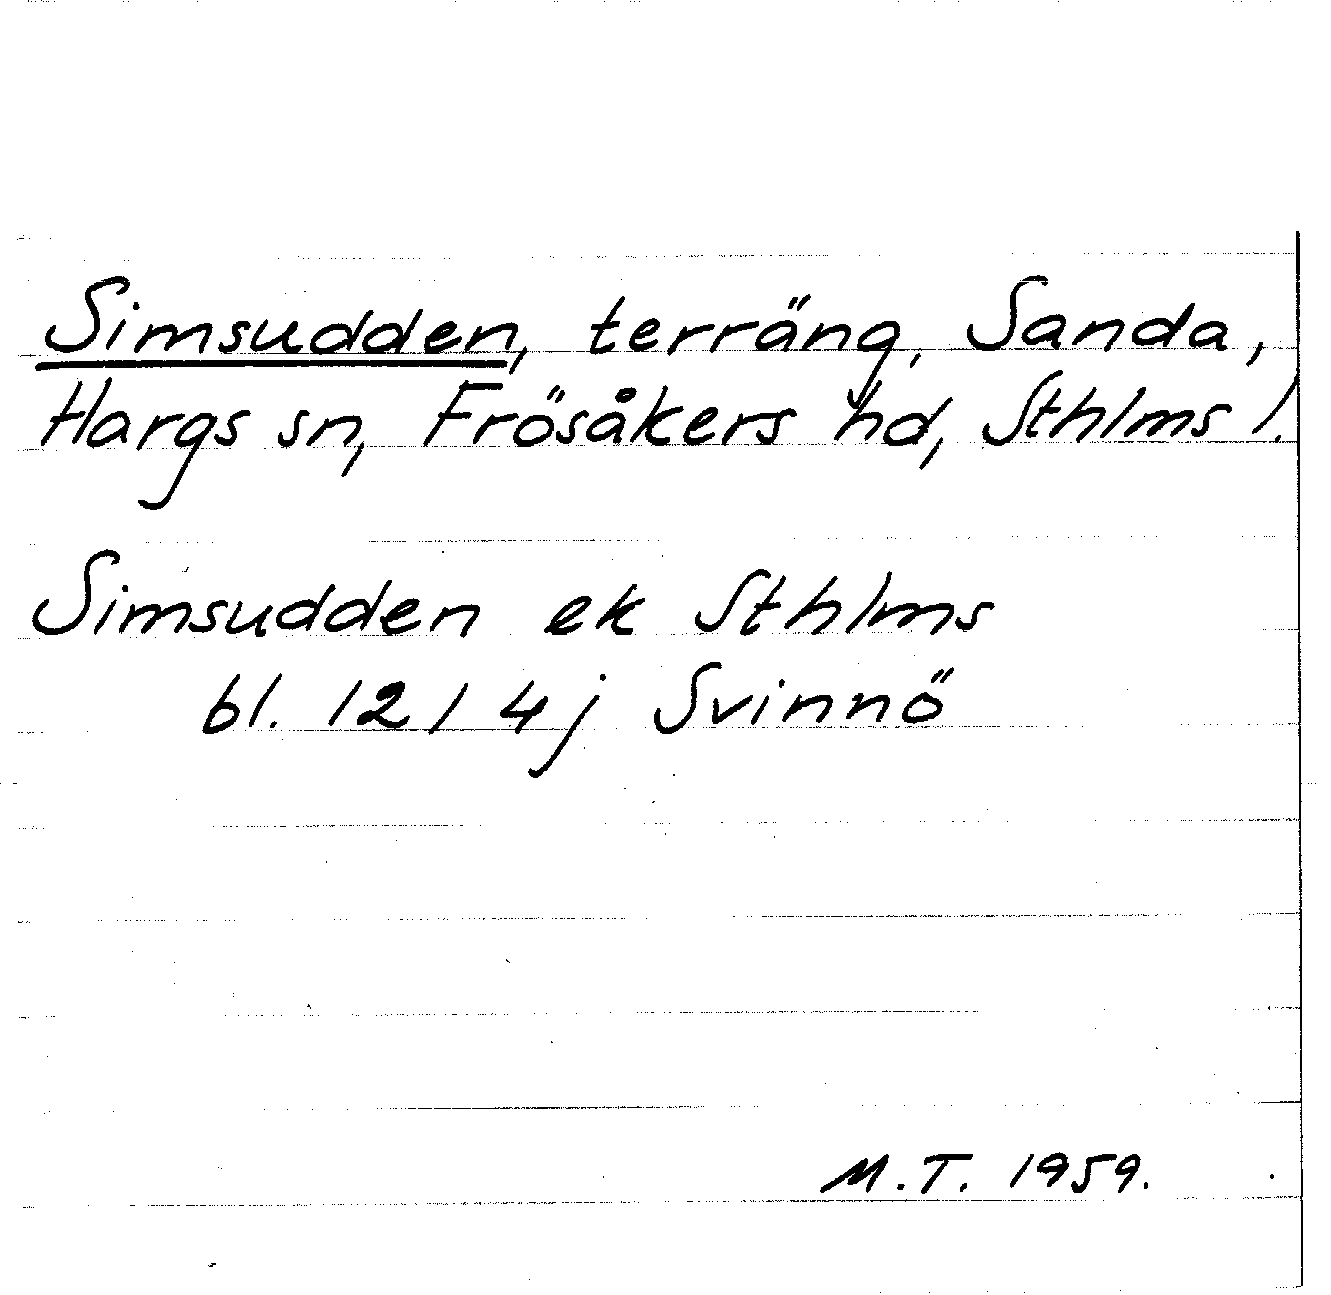 Simsudden, terräng, Sanda,
Hargs sn, Frösåkers hd, Sthlms l.
Simsudden ek Sthlms
bl. 12 I 4j Svinnö
M.T. 1959.